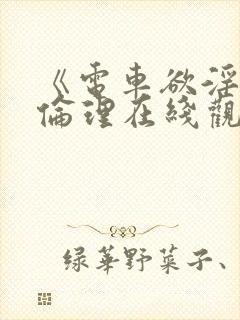 《電車欲淫
倫理在綫觀
綠華野菜子、